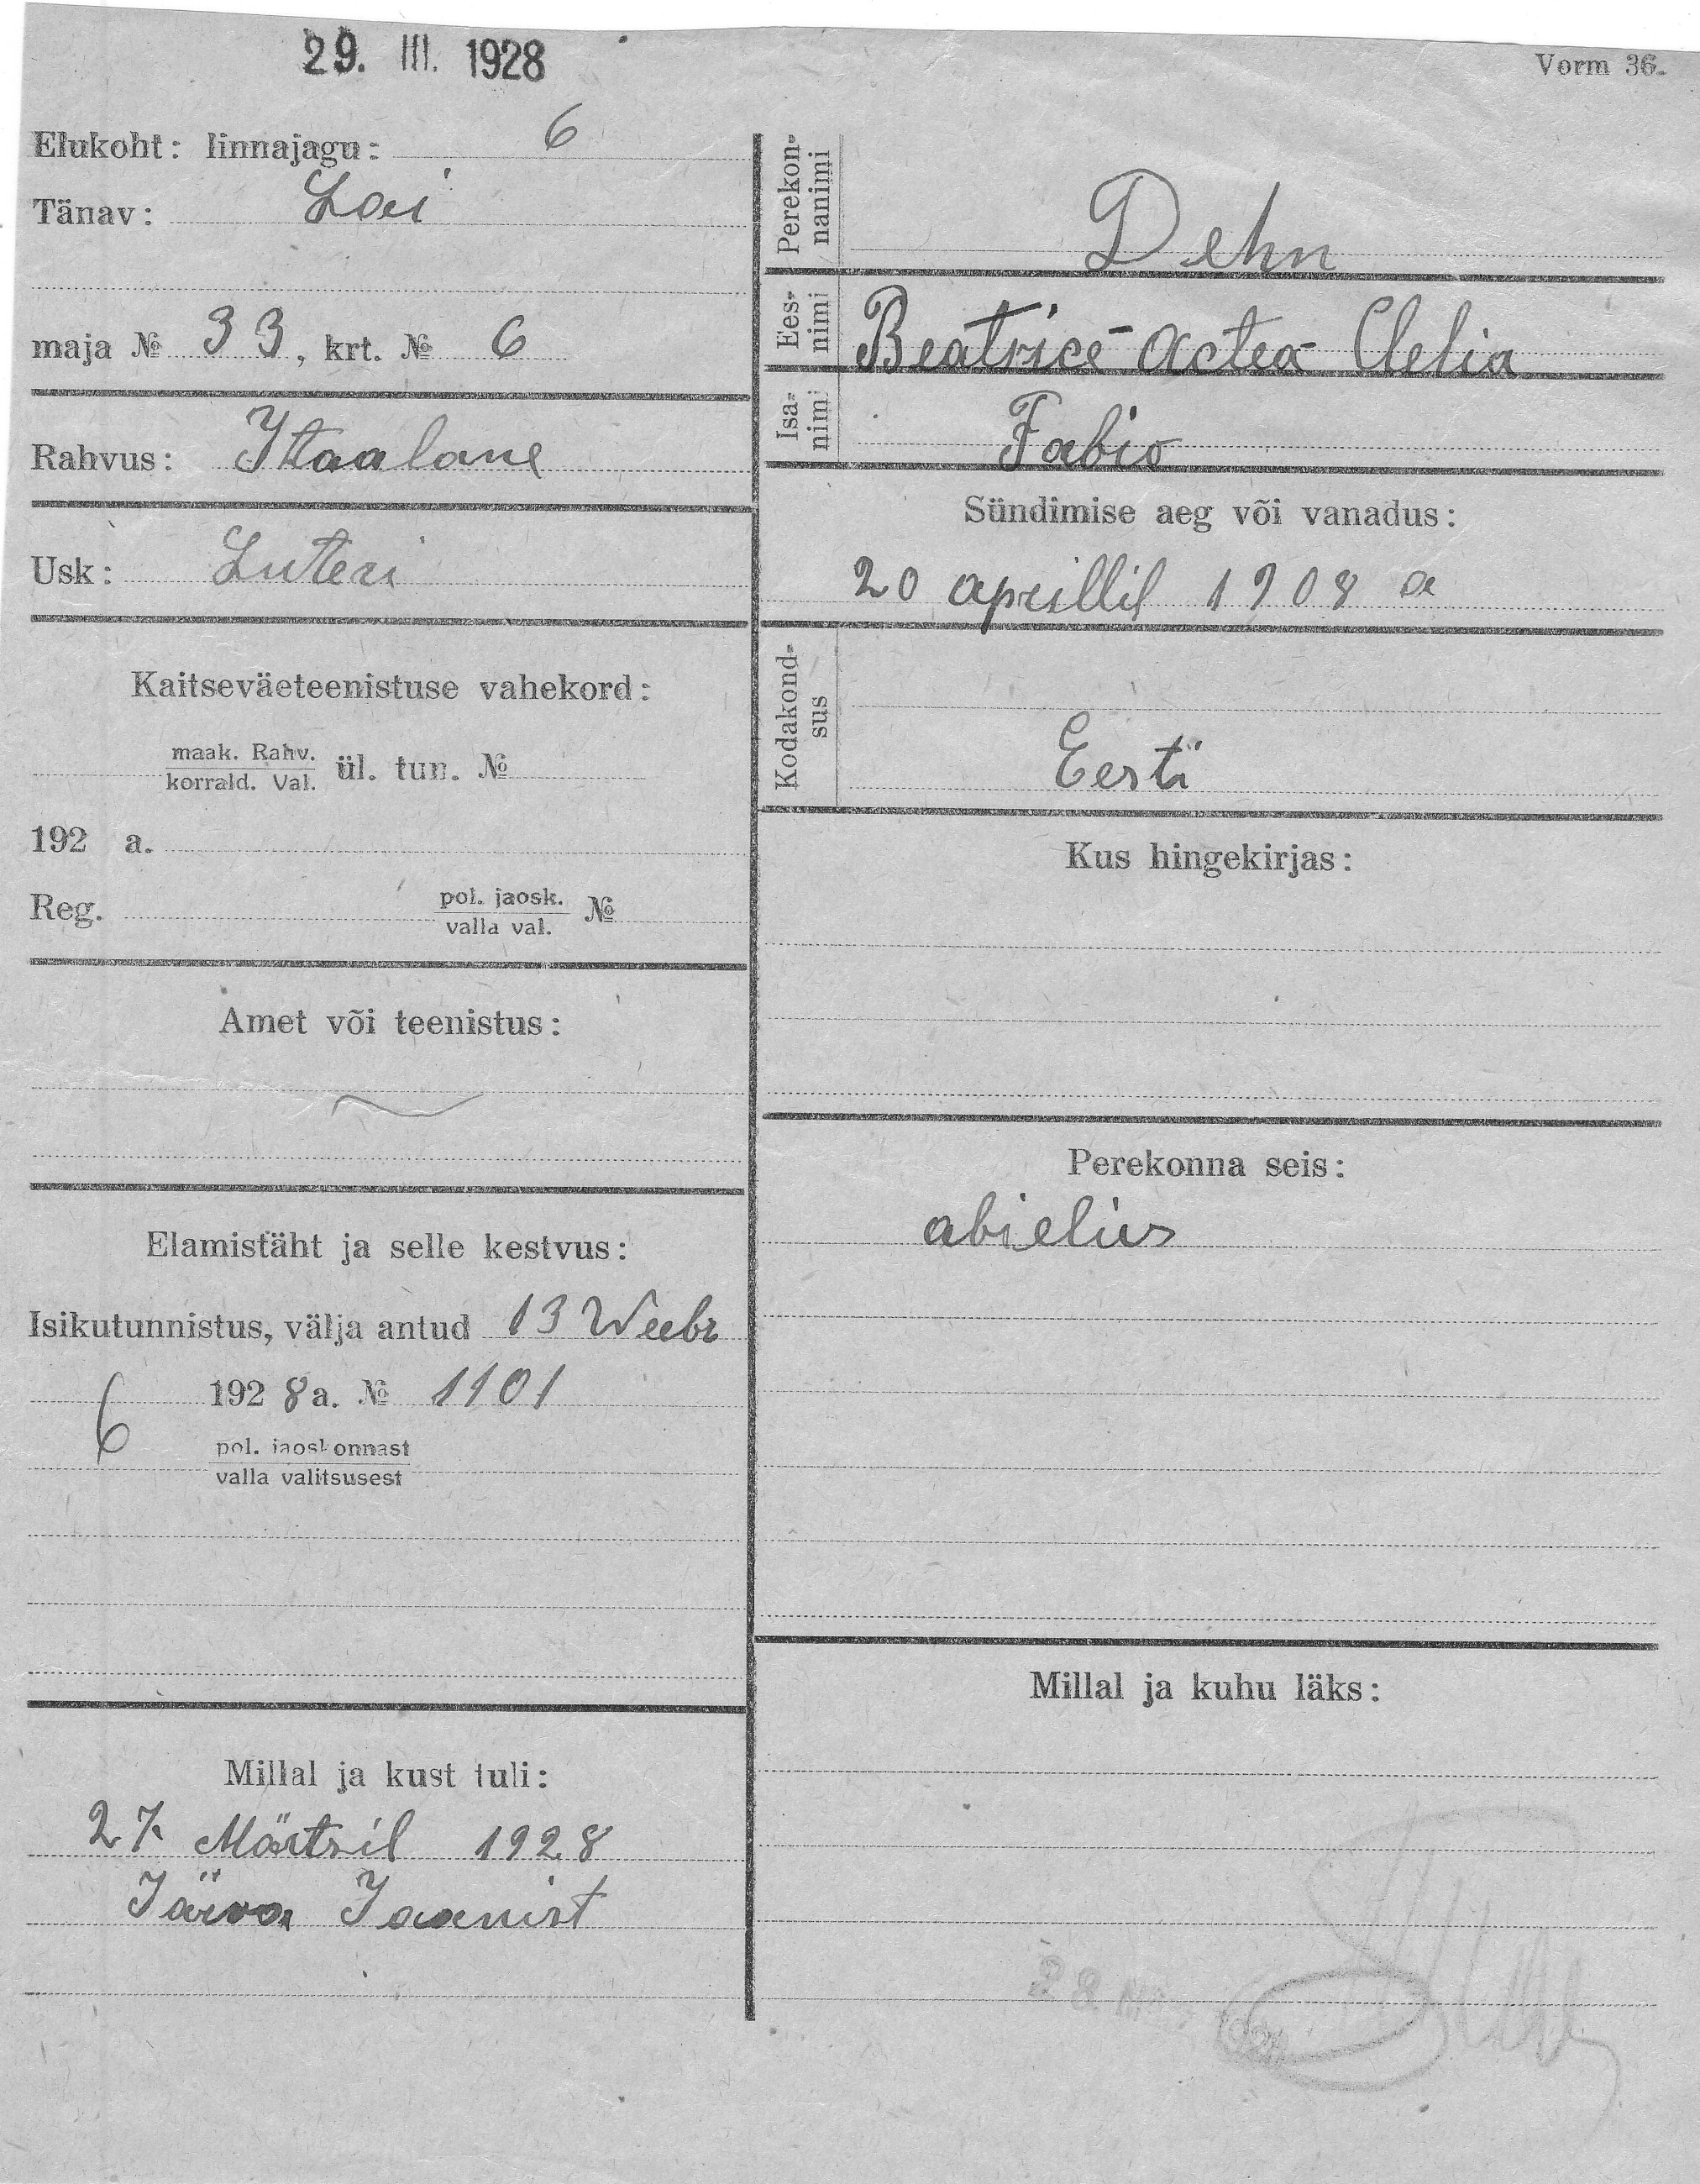 29. III. 1928
Vorm 36.
Elukoht: linnajagu: 6
Tänav: Lai
maja № 33, krt. № 6
Rahvus: Itaalane
Usk: Luteri
Kaitseväeteenistuse vahekord:
maak. Rahv.
korrald. Val. ül. tun. №
192 a.
Reg. pol. jaosk. №
valla val.
Amet või teenistus:
Elamistäht ja selle kestvus:
Isikutunnistus, välja antud 13 Weebr
1928a. № 1101
6 pol. jaoskonnast
valla valitsusest
Millal ja kust tuli:
27. Märtsil 1928
Järva Jaanist
Perekonnanimi Dehn
Eesnimi Beatrice-Actea-Clelia
Isanimi Fabio
Sündimise aeg või vanadus:
20 aprillil 1908 a
Kodakondsus
Eesti
Kus hingekirjas:
Perekonna seis:
abielus
Millal ja kuhu läks: